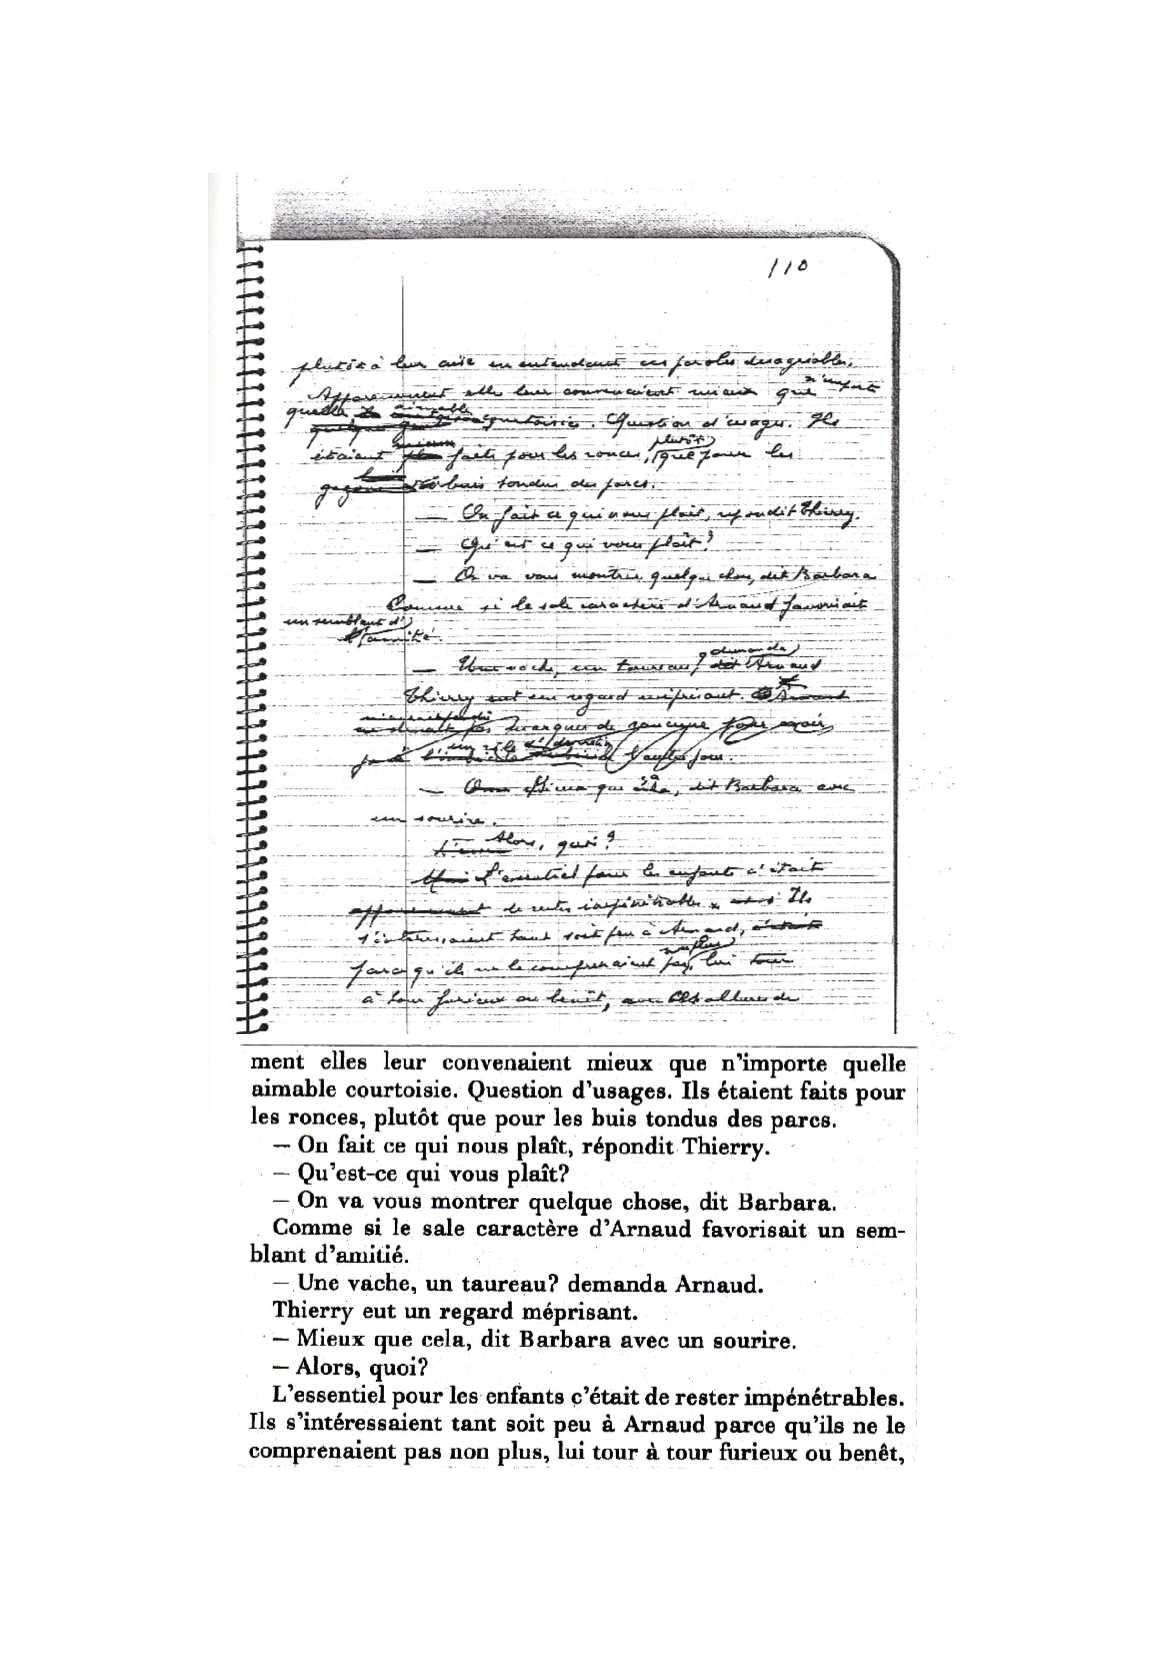 110
plutôt à leur aise en entendant ces paroles désagréables.
Apparemment elles leur convenaient mieux que n'importe
quelle aimable courtoisie. Question d'usages. Ils
étaient faits pour les ronces, plutôt que pour les
buis tondus des parcs.
— On fait ce qui nous plaît, répondit Thierry.
— Qu'est ce qui vous plaît?
— On va vous montrer quelque chose, dit Barbara
Comme si le sale caractère d'Arnaud favorisait
un semblant d'
amitié.
— Une vache, un taureau? demanda Arnaud
Thierry eut un regard méprisant.
— Mieux que cela, dit Barbara avec
un sourire.
Alors, quoi?
L'essentiel pour les enfants c'était
de rester impénétrables. Ils
s'intéressaient tant soit peu à Arnaud,
parce qu'ils ne le comprenaient pas non plus, lui tour
à tour furieux ou benêt, avec des allures de
ment elles leur convenaient mieux que n'importe quelle
aimable courtoisie. Question d'usages. Ils étaient faits pour
les ronces, plutôt que pour les buis tondus des parcs.
— On fait ce qui nous plaît, répondit Thierry.
— Qu'est-ce qui vous plaît?
— On va vous montrer quelque chose, dit Barbara.
Comme si le sale caractère d'Arnaud favorisait un sem-
blant d'amitié.
— Une vache, un taureau? demanda Arnaud.
Thierry eut un regard méprisant.
— Mieux que cela, dit Barbara avec un sourire.
— Alors, quoi?
L'essentiel pour les enfants c'était de rester impénétrables.
Ils s'intéressaient tant soit peu à Arnaud parce qu'ils ne le
comprenaient pas non plus, lui tour à tour furieux ou benêt,